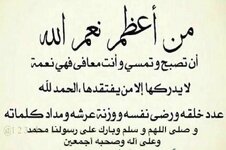 من أعظم نعم الله
أن تصبح وتمسي وأنت معافى فهي نعمة
لا يدركها إلا من يفتقدها، الحمد لله
عدد خلقه ورضى نفسه ووزنة عرشه ومداد كلماته
و صلى اللهم و سلم وبارك على رسولنا محمد
وعلى آله وصحبه أجمعين